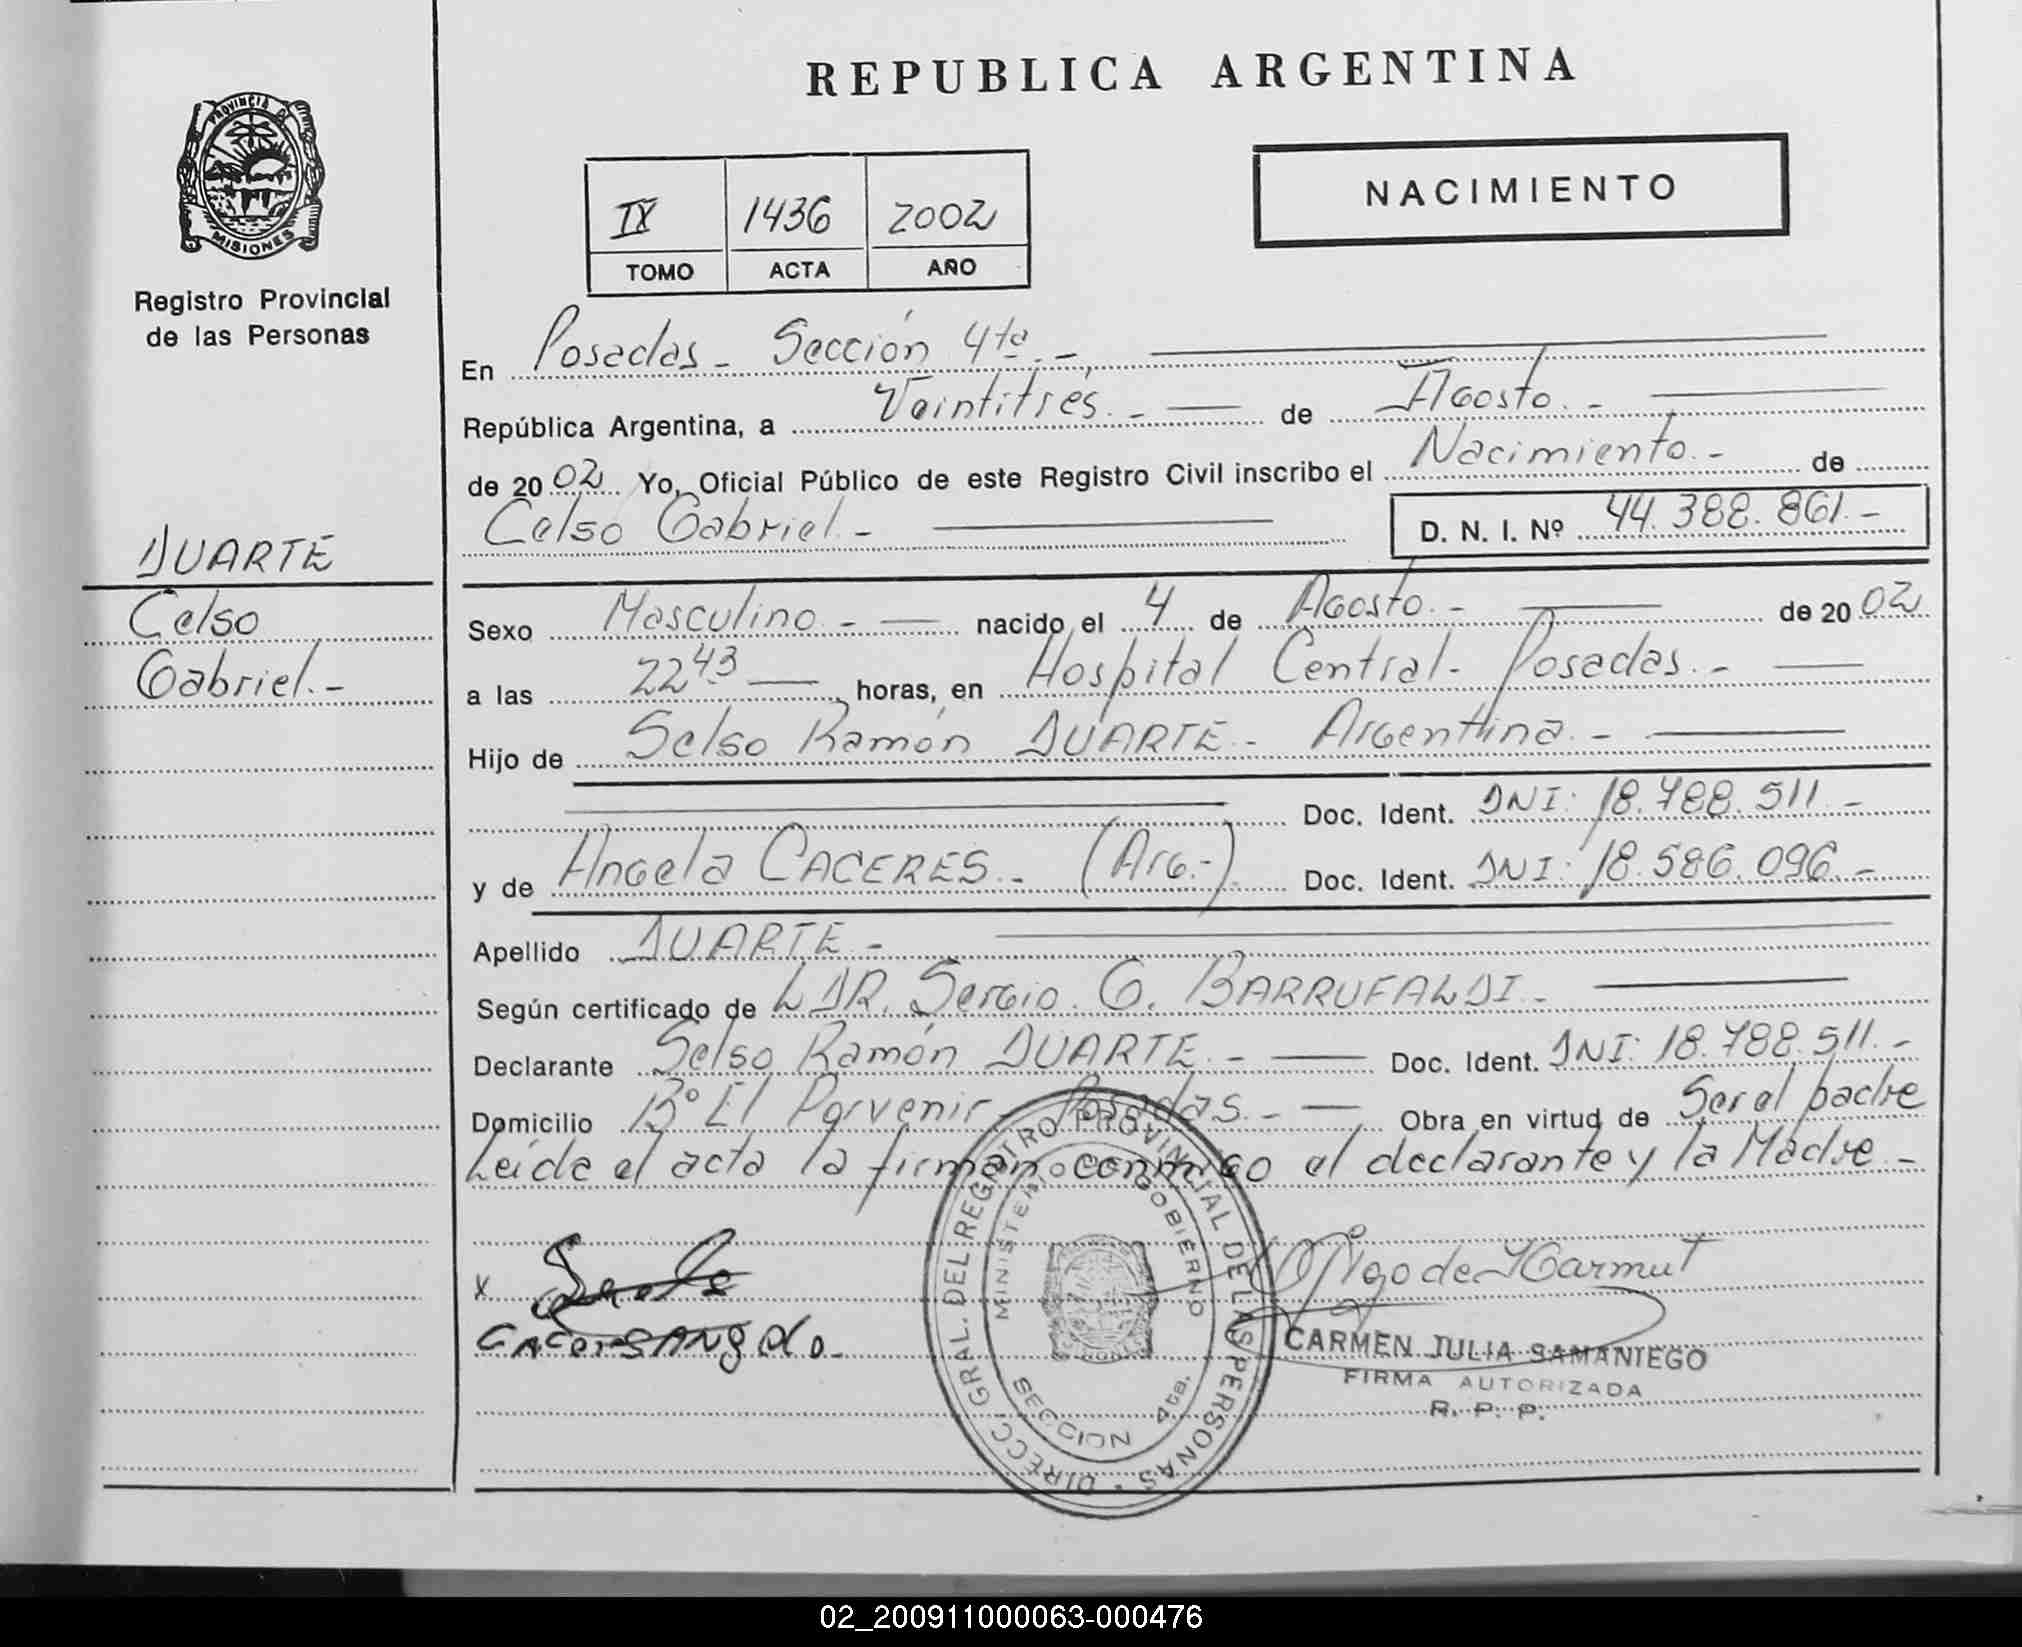 REPUBLICA ARGENTINA
PROVINCIA DE
MISIONES
Registro Provincial
de las Personas
IX 1436 2002
TOMO ACTA AÑO
NACIMIENTO
En Posadas - Sección 4ta. -
República Argentina, a Veintitrés. - de Agosto. -
de 2002 Yo, Oficial Público de este Registro Civil inscribo el Nacimiento. - de
Celso Gabriel. - D. N. I. Nº 44.388.861. -
DUARTE
Celso
Gabriel. -
Sexo Masculino. - nacido el 4 de Agosto. - de 2002
a las 22 43 horas, en Hospital Central - Posadas. -
Hijo de Selso Ramón DUARTE. - Argentina. -
Doc. Ident. DNI: 18.788.511. -
y de Angela CACERES. - (Arg. -) Doc. Ident. DNI: 18.586.096. -
Apellido DUARTE. -
Según certificado de LDR. Sergio. G. BARRUFALDI. -
Declarante Selso Ramón DUARTE. - Doc. Ident. DNI: 18.788.511. -
Domicilio Bº El Porvenir - Posadas. - Obra en virtud de Ser el padre
Leída el acta la firman conmigo el declarante y la Madre -
x
DIRECC. GRAL. DEL REGISTRO PROVINCIAL DE LAS PERSONAS
MINISTERIO DE GOBIERNO
SECCION 4ta.
CARMEN JULIA SAMANIEGO
FIRMA AUTORIZADA
R. P. P.
02_200911000063-000476